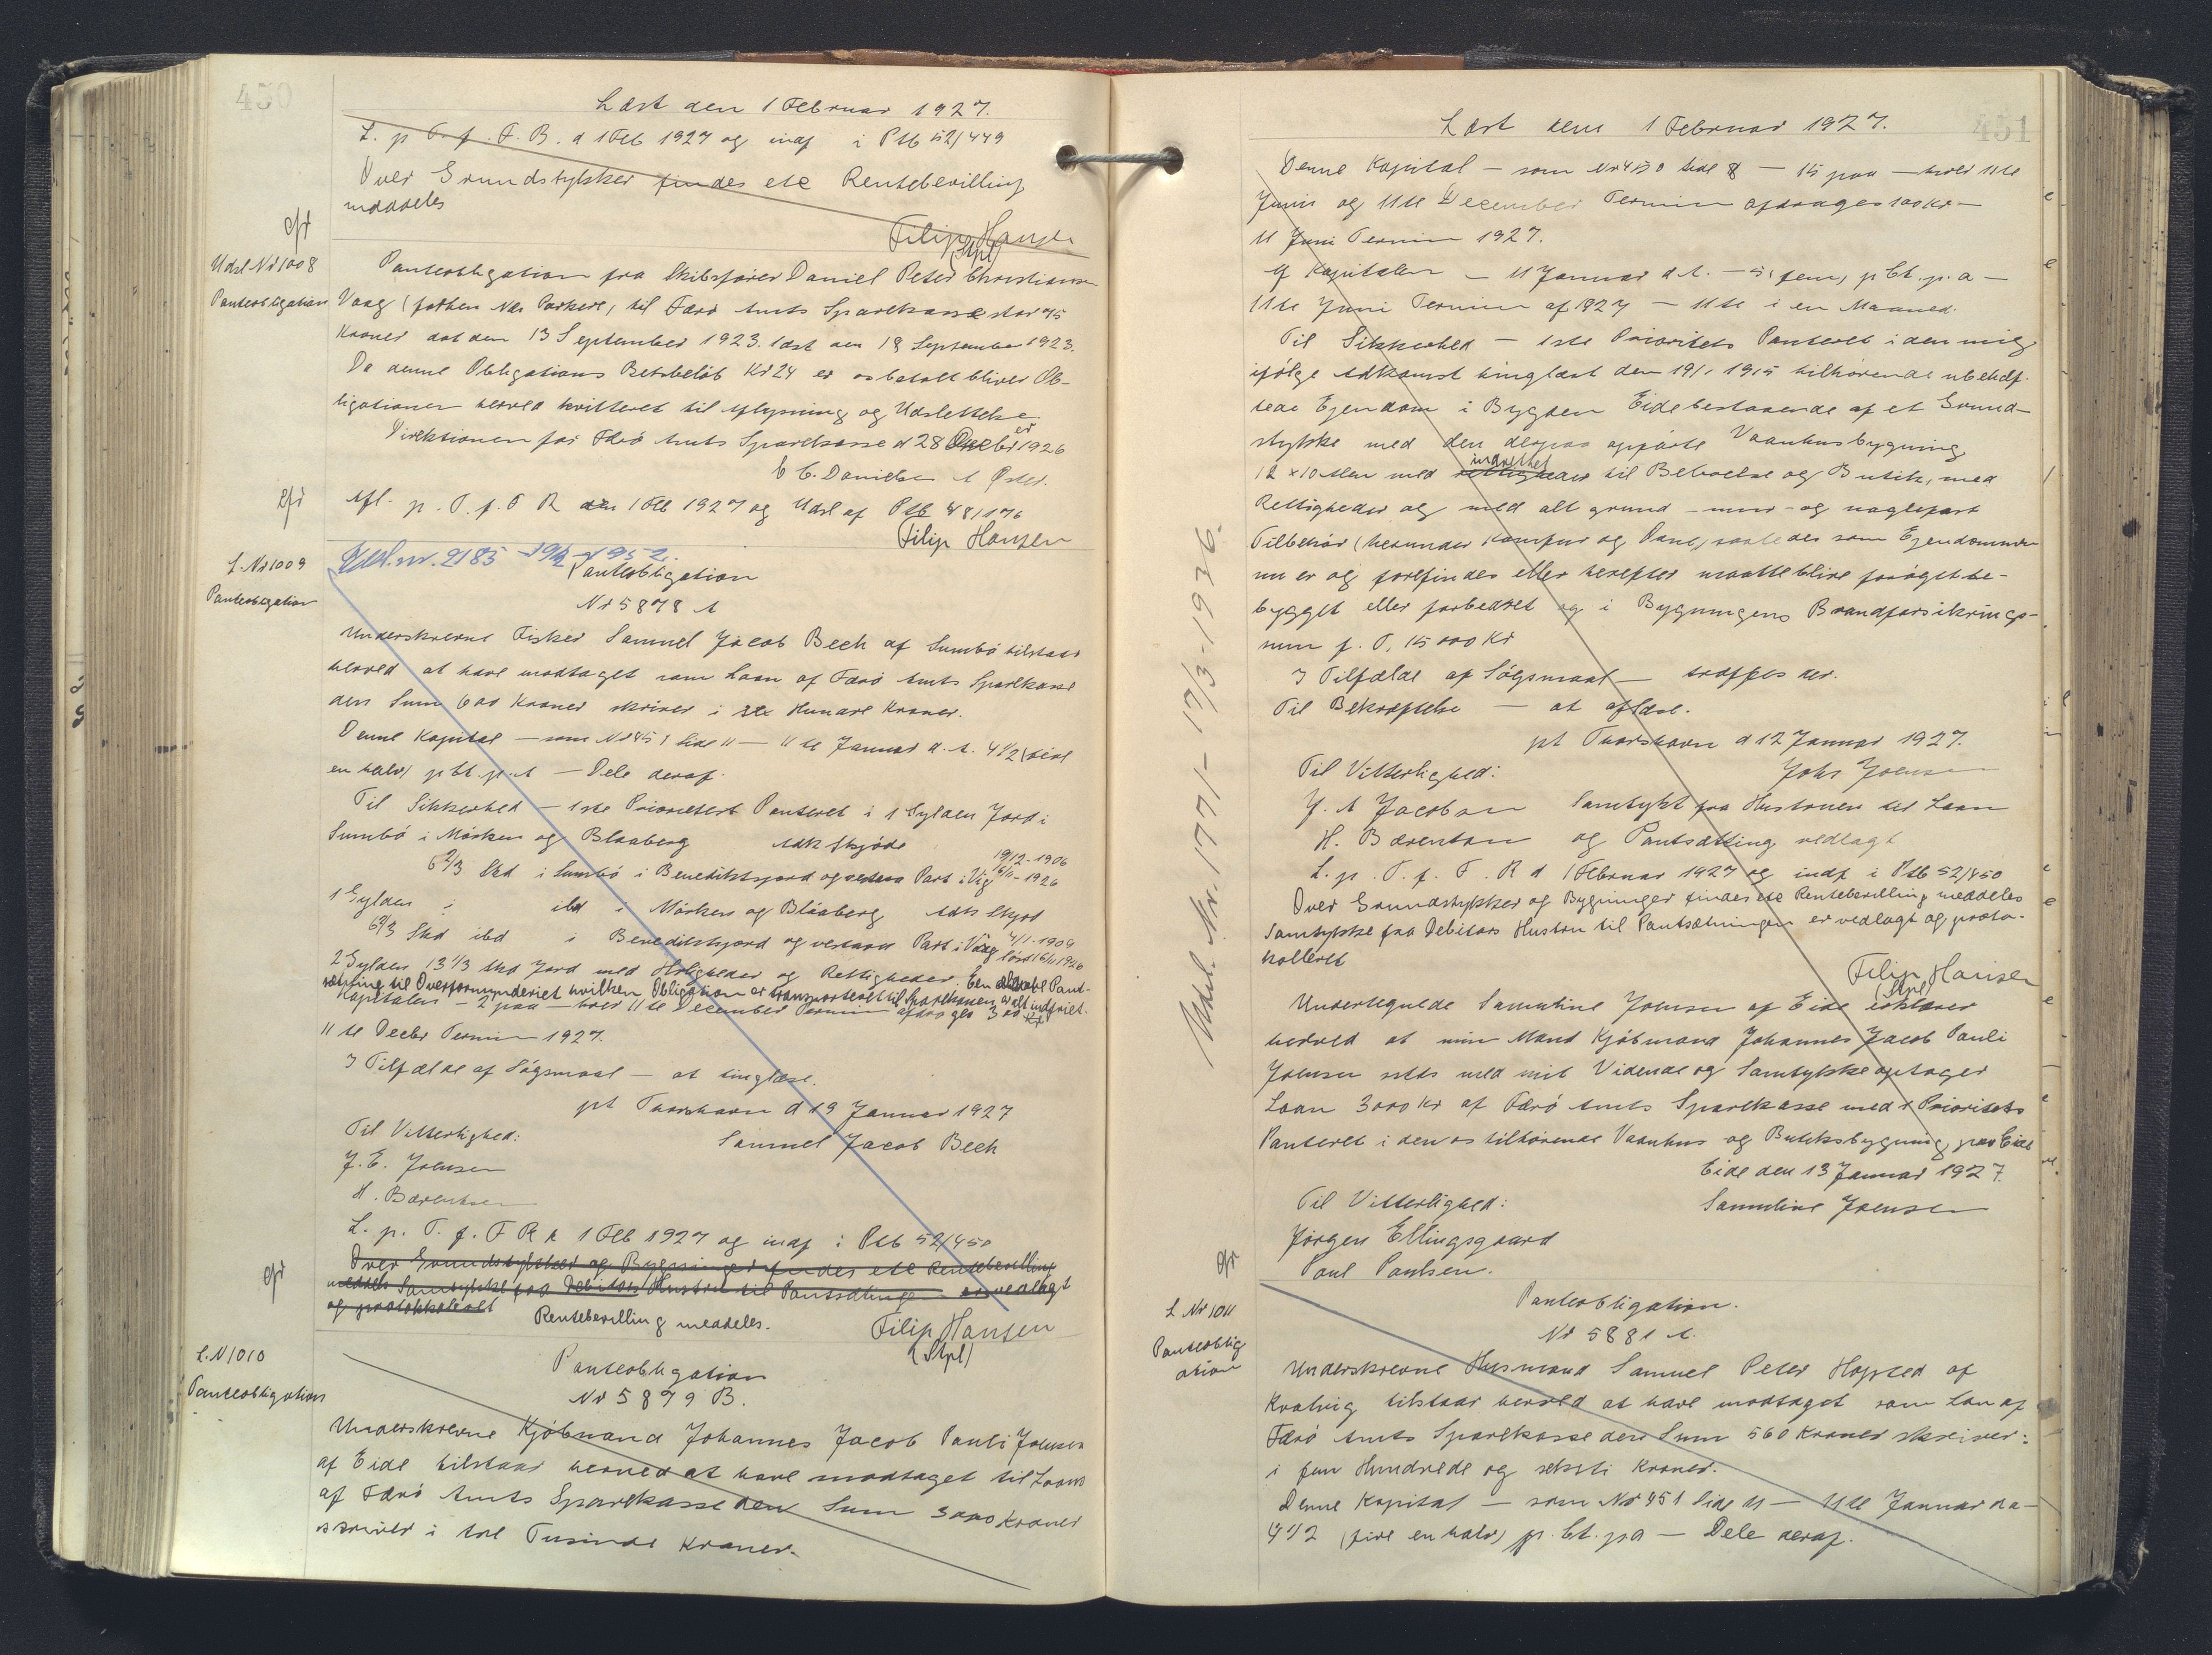 450
Læst den 1 Februar 1927.
L. p T. f. F. R. d 1 Feb 1927 og indf i Ptb 52/449
Over Grundstykker findes ete Rentebevilling
meddeles
Filip Hansen
(Stpl)
cfr
Udsl Nr 1008
Panteobligation
Panteobligation fra Skibsfører Daniel Peter Christiansen
Vaag (forhen Næs Porkere) til Færø Amts Sparekasse stor 75
Kroner dat den 13 September 1923. læst den 19 September 1923.
Da denne Obligations Restbeløb Kr 24 er os betalt bliver Ob-
ligationen herved kvitteret til Aflysning og Udslettelse
Direktionen for Færø Amts Sparekasse d 28 Decbr 1926
C C. Danielsen A Øster.
cfr
Afl. p. T. f. F R den 1 Feb 1927 og Udsl af Ptb 48/176
Filip Hansen
L. Nr 1009
Panteobligation
Udsl. nr. 2185 - 19/2 - 1952.
Panteobligation
Nr 5878 A
Underskrevne Fisker Samuel Jacob Bech af Sumbø tilstaar
herved at have modtaget som Laan af Færø Amts Sparekasse
den Sum 600 Kroner skriver i sex Hundre Kroner.
Denne Kapital — som Nr 451 Side 11 — 11te Januar d. A. 4 1/2 (fire
en halv) p Ct. p. A — Dele deraf.
Til Sikkerhed — 1ste Prioritets Panteret i 1 Gylden Jord i
Sumbø i Mørken og Blaaberg Adk Skjøde 19/12-1906
6 2/3 Skd i Sumbø i Benediktsfjord og vestara Part i Vág 16/11-1926
1 Gylden i ibd i Mørken og Blaaberg Adk Skjød
6 2/3 Skd ibd i Benediktsfjord og vestara Part i Våg 4/1-1909 læst 16/11 1926
2 Gylden 13 1/3 Skd Jord med Herligheder og Rettigheder. En ældre Pant-
sætning til Overformynderiet hvilken Obligation er transporteret til Sparekassen er alt indfriet.
Kapitalen — 2 paa — hver 11te December Termin afdrages 300 Kr
11te Decbr Termin 1927.
I Tilfælde af Søgsmaal — at tinglæse.
pt Thorshavn d 19 Januar 1927
Til Vitterlighed: Samuel Jacob Bech
J. E. Joensen
H. Bærentsen
L. p. T. f. F R d 1 Feb 1927 og indf i Ptb 52/450
cfr
Over Grundstykker og Bygninger findes ete Rentebevilling
meddeles Samtykke fra Debitors Hustru til Pantsætninge er vedlagt
og protokkoleret Rentebevilling meddeles.
Filip Hansen
(Stpl)
L. N 1010
Panteobligation
Panteobligation
Nr 5879 B.
Underskrevne Kjøbmand Johannes Jacob Pauli Joensen
af Eide tilstaar herved at have modtaget til Laans
af Færø Amts Sparekasse den Sum 3000 Kroner
skriver i tre Tusinde Kroner.
451
Læst den 1 Februar 1927.
Denne Kapital — som Nr 450 Side 8 — 15 paa — hver 11te
Juni og 11te December Termin afdrages 100 Kr —
11 Juni Termin 1927.
Af Kapitalen — 11 Januar d. A. — 5, fem, p Ct. p. a —
11te Juni Termin af 1927 — 11te i en Maaned.
Til Sikkerhed — 1ste Prioritets Panteret i den mig
ifølge Adkomst tinglæst den 19/1 1915 tilhørende ubehæf-
tede Ejendom i Bygden Eide bestaaende af et Grund-
stykke med den derpaa opførte Vaanhusbygning
12 x 10 Alen med rettigheder indrettet til Beboelse og Butik, med
Rettigheder og med alt grund - mur - og naglefast
Tilbehør (herunder Komfur og Ovne) saaledes som Ejendommen
nu er og forefindes eller herefter maatte blive forøget be-
bygget eller forbedret og i Bygningens Brandforsikrings-
sum p. T. 15000 Kr
I Tilfælde af Søgsmaal — træffes der.
Til Bekræftelse — at aflæse.
pt Thorshavn d 12 Januar 1927.
Til Vitterlighed: Johs Joensen
J. A Jacobsen Samtykt fra Hustruen til Laan
H. Bærentsen og Pantsætting vedlagt
L. p. T. f. F. R d 1 Februar 1927 og indf i Ptb 52/450
Over Grundstykker og Bygninger findes ete Rentebevilling meddeles
Samtykke fra Debitors Hustru til Pantsætningen er vedlagt og proto-
kolleret
Filip Hansen
(Stpl)
Udsl. Nr. 1771 - 17/3 - 1936.
Undertegnede Sanneline Joensen af Eide erklærer
herved at min Mand Kjøbmand Johannes Jacob Pauli
Joensen sslds med mit Vidende og Samtykke optager
Laan 3000 Kr af Færø Amts Sparekasse med 1 Prioritets
Panteret i den os tilhørende Vaanhus og Butiksbygning paa Eide
Eide den 13 Januar 1927.
Til Vitterlighed: Sanneline Joensen
Jørgen Ellingsgaard
Poul Poulsen.
cfr
L Nr 1011
Panteoblig
ation
Panteobligation.
Nr 5881 A.
Underskrevne Husmand Samuel Peter Hansen af
Kvalvig tilstaar herved at have modtaget som Lån af
Færø Amts Sparekasse den Sum 560 Kroner skriver:
i fem Hundrede og seksti Kroner.
Denne Kapital — som Nr 451 Side 11 — 11te Januar da —
4 1/2 (fire en halv) p. Ct. pa — Dele deraf.